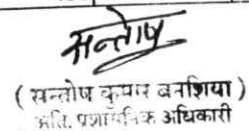 सन्तोष
( सन्तोष कुमार बनशिया )
अति. प्रशासनिक अधिकारी